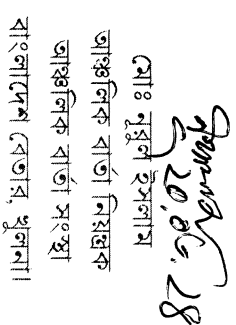 মোঃ নুরুল ইসলাম
আঞ্চলিক বার্তা নিয়ন্ত্রক
আঞ্চলিক বার্তা সংস্থা
বাংলাদেশ বেতার, খুলনা।